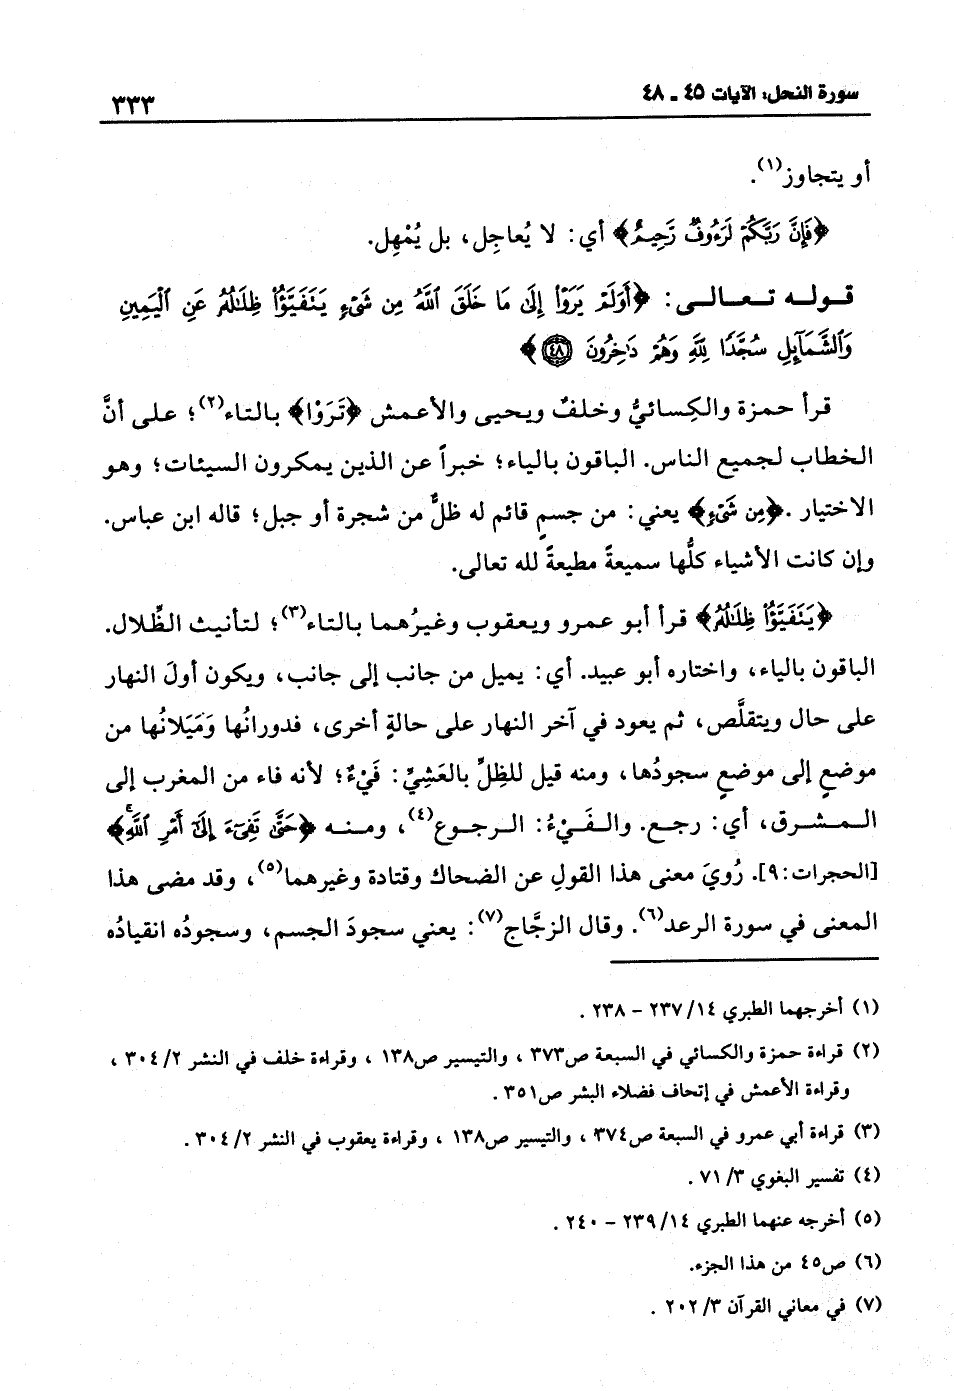 سورة النحل: الآيات ٤٥ ـ ٤٨
٣٣٣
أو يتجاوز(١).
﴿فَإِنَّ رَبَّكُمْ لَرَءُوفٌ رَّحِيمٌ﴾ أي: لا يُعاجِل، بل يُمْهِل.
قوله تعالى: ﴿أَوَلَمْ يَرَوْا۟ إِلَىٰ مَا خَلَقَ ٱللَّهُ مِن شَىْءٍ يَتَفَيَّؤُا۟ ظِلَـٰلُهُۥ عَنِ ٱلْيَمِينِ
وَٱلشَّمَآئِلِ سُجَّدًا لِّلَّهِ وَهُمْ دَٰخِرُونَ ٤٨﴾
قرأ حمزة والكِسائيُّ وخلفٌ ويحيى والأعمش ﴿تَرَوْا﴾ بالتاء(٢)؛ على أنَّ
الخطاب لجميع الناس. الباقون بالياء؛ خبراً عن الذين يمكرون السيئات؛ وهو
الاختيار. ﴿مِن شَىْءٍ﴾ يعني: من جسمٍ قائم له ظلٌّ من شجرة أو جبل؛ قاله ابن عباس.
وإن كانت الأشياء كلُّها سميعةً مطيعةً لله تعالى.
﴿يَتَفَيَّؤُا۟ ظِلَـٰلُهُۥ﴾ قرأ أبو عمرو ويعقوب وغيرُهما بالتاء(٣)؛ لتأنيث الظِّلال.
الباقون بالياء، واختاره أبو عبيد. أي: يميل من جانب إلى جانب، ويكون أولَ النهار
على حال ويتقلَّص، ثم يعود في آخر النهار على حالةٍ أخرى، فدورانُها وَمَيَلانُها من
موضعٍ إلى موضعٍ سجودُها، ومنه قيل للظِلِّ بالعَشِيِّ: فَيْءٌ؛ لأنه فاء من المغرب إلى
المشرق، أي: رجع. والفَيْءُ: الرجوع(٤)، ومنه ﴿حَتَّىٰ تَفِىٓءَ إِلَىٰٓ أَمْرِ ٱللَّهِۚ﴾
[الحجرات:٩]. رُويَ معنى هذا القولِ عن الضحاك وقتادة وغيرهما(٥)، وقد مضى هذا
المعنى في سورة الرعد(٦). وقال الزجَّاج(٧): يعني سجودَ الجسم، وسجودُه انقيادُه
(١) أخرجهما الطبري ١٤/ ٢٣٧ – ٢٣٨ .
(٢) قراءة حمزة والكسائي في السبعة ص٣٧٣ ، والتيسير ص١٣٨ ، وقراءة خلف في النشر ٢/ ٣٠٤ ،
وقراءة الأعمش في إتحاف فضلاء البشر ص٣٥١ .
(٣) قراءة أبي عمرو في السبعة ص٣٧٤ ، والتيسير ص١٣٨ ، وقراءة يعقوب في النشر ٢/ ٣٠٤ .
(٤) تفسير البغوي ٣/ ٧١ .
(٥) أخرجه عنهما الطبري ١٤/ ٢٣٩ – ٢٤٠ .
(٦) ص٤٥ من هذا الجزء.
(٧) في معاني القرآن ٣/ ٢٠٢ .